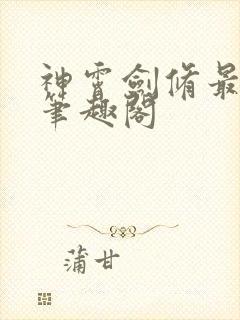 神霄劍脩最
筆趣閣
蒲甘